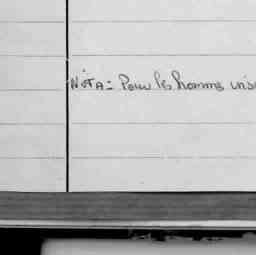 NOTA: Pour les hommes